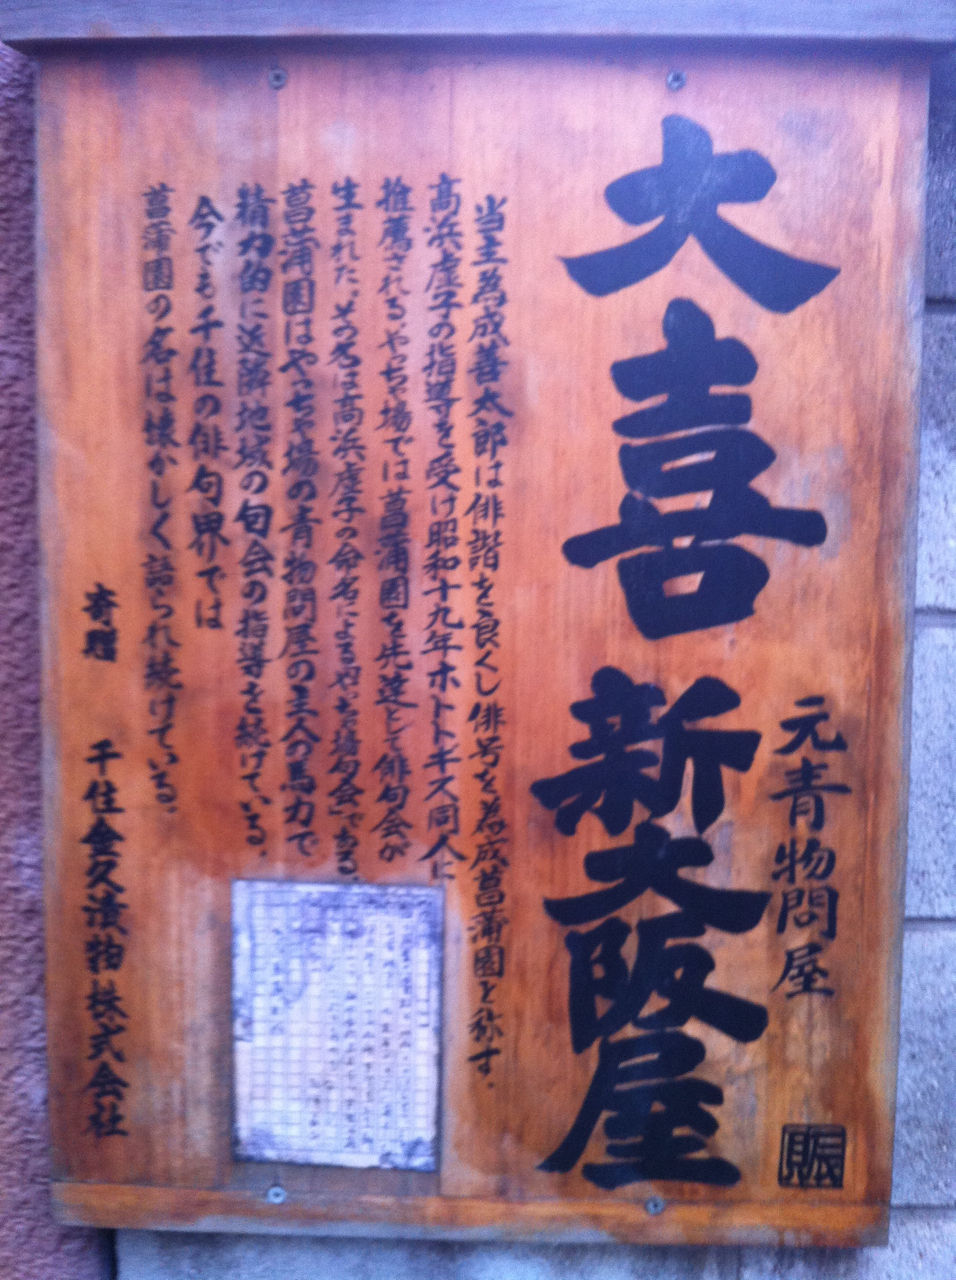 元青物問屋
大喜 新大阪屋
当主為成善太郎は俳諧を良くし俳号を為成菖蒲園と称す.
高浜虚子の指導を受け昭和十九年ホトトギス同人に
推薦されるやっちゃ場では菖蒲園を先達として俳句会が
生まれた。その名は高浜虚子の命名による「やっちゃ場句会」である.
菖蒲園はやっちゃ場の青物問屋の主人の馬力で
精力的に近隣地域の句会の指導を続けている.
今でも千住の俳句界では
菖蒲園の名は懐かしく語られ続けている.
寄贈 千住金久漬物株式会社
賑